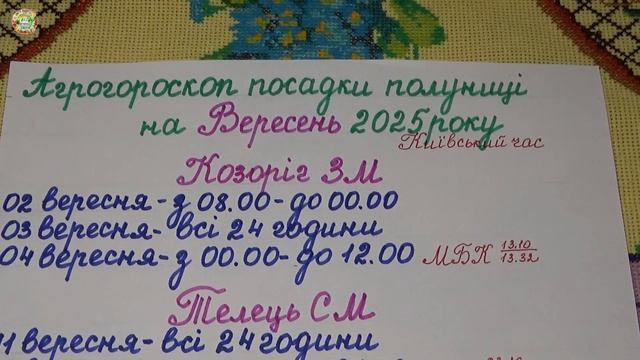 Агрогороскоп посадки полуниці
на Вересень 2025 року
Київський час
Козоріг ЗМ
02 вересня - з 08.00 - до 00.00
03 вересня - всі 24 години
04 вересня - з 00.00 - до 12.00 МБК 13.10
13.32
Телець СМ
11 вересня - всі 24 години